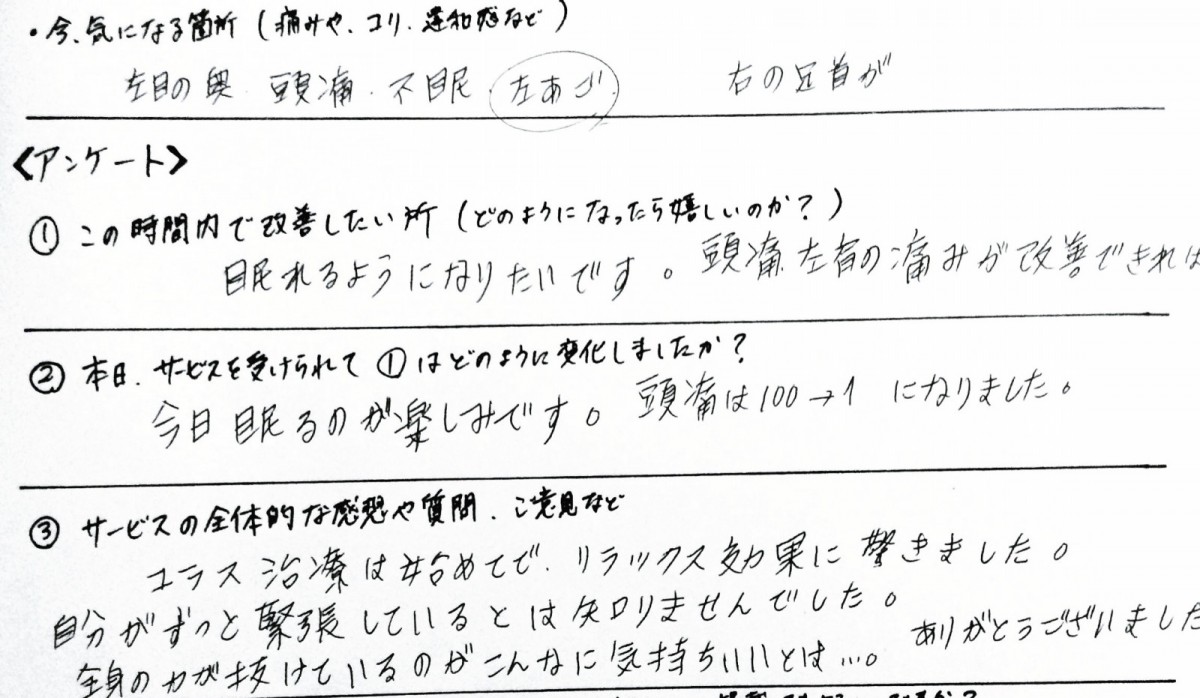 ・今、気になる箇所（痛みや、コリ、違和感など）
左目の奥 頭痛・不眠 左あご 右の足首が
<アンケート>
① この時間内で改善したい所（どのようになったら嬉しいのか？）
眠れるようになりたいです。頭痛、左肩の痛みが改善できれば
② 本日、サービスを受けられて①はどのように変化しましたか？
今日眠るのが楽しみです。頭痛は100→1 になりました。
③ サービスの全体的な感想や質問、ご意見など
コラス治療は始めてで、リラックス効果に驚きました。
自分がずっと緊張しているとは知りませんでした。
全身の力が抜けているのがこんなに気持ちいいとは…。ありがとうございました